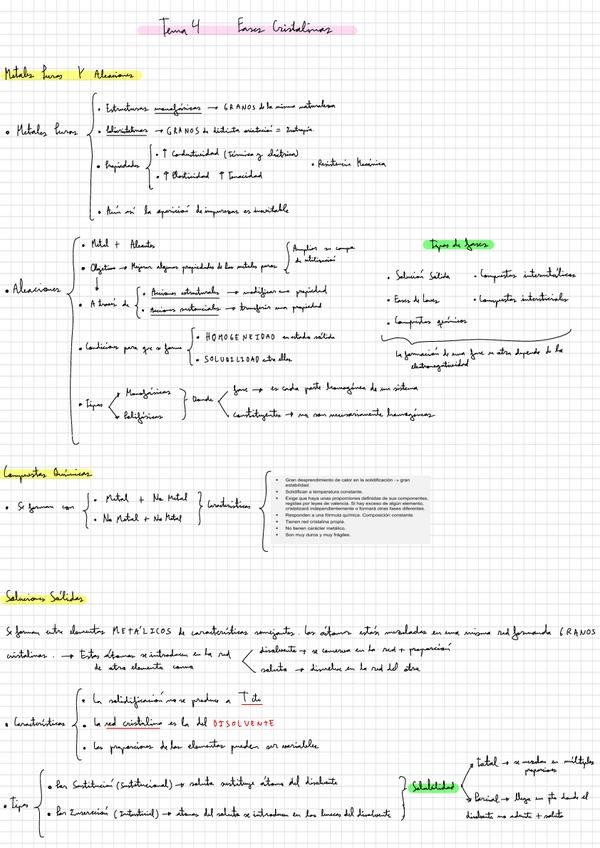 Tema 4 Fases Cristalinas
Metales Puros Y Aleaciones
• Metales Puros
• Estructuras monofásicas → GRANOS de la misma naturaleza
• Policristalinos → GRANOS de distinta orientación = Isotropía
• Propiedades
• ↑ Conductividad (Térmica y eléctrica)
• ↑ Plasticidad ↑ Tenacidad
• Resistencia Mecánica
• Aún así la aparición de impurezas es inevitable
• Aleaciones
• Metal + Aleantes
• Objetivo → Mejorar algunas propiedades de los metales puros
Ampliar su campo
de utilización
• A través de
• Acciones estructurales → modificar una propiedad
• Acciones sustanciales → transferir una propiedad
• Condiciones para que se forme
• HOMOGENEIDAD en estado sólido
• SOLUBILIDAD entre ellos
• Tipos
Monofásicas
Polifásicas
Donde
fase → es cada parte homogénea de un sistema
constituyentes → no son necesariamente homogéneos
Tipos de fases
• Solución Sólida • Compuestos intermetálicos
• Fases de Laves • Compuestos intersticiales
• Compuestos químicos
La formación de una fase u otra depende de la
electronegatividad
Compuestos Químicos
• Se forman con
• Metal + No Metal
• No Metal + No Metal
Características
• Gran desprendimiento de calor en la solidificación -> gran
estabilidad.
• Solidifican a temperatura constante.
• Exige que haya unas proporciones definidas de sus componentes,
regidas por leyes de valencia. Si hay exceso de algún elemento,
cristalizará independientemente o formará otras fases diferentes.
• Responden a una fórmula química. Composición constante.
• Tienen red cristalina propia.
• No tienen carácter metálico.
• Son muy duros y muy frágiles.
Soluciones Sólidas
Se forman entre elementos METÁLICOS de características semejantes. Los átomos están mezclados en una misma red formando GRANOS
cristalinos. → Estos átomos se introducen en la red
de otro elemento como
disolvente → se conserva en la red + proporción
soluto → disuelve en la red del otro
• Características
• La solidificación no se produce a T cte
• La red cristalina es la del DISOLVENTE
• Las proporciones de los elementos pueden ser variables
• Tipos
• Por Sustitución (Sustitucional) → soluto sustituye átomos del disolvente
• Por Inserción (Intersticial) → átomos del soluto se introducen en los huecos del disolvente
Solubilidad
Total → se mezclan en múltiples
proporciones
Parcial → llega un pto donde el
disolvente no admite + soluto